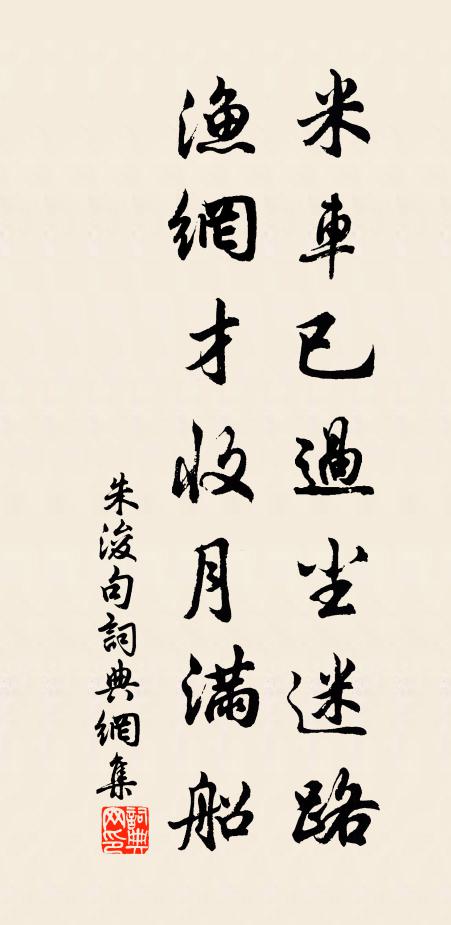 米車已過尘迷路
漁網才收月滿船
朱浚句詞典網集
詞典网印